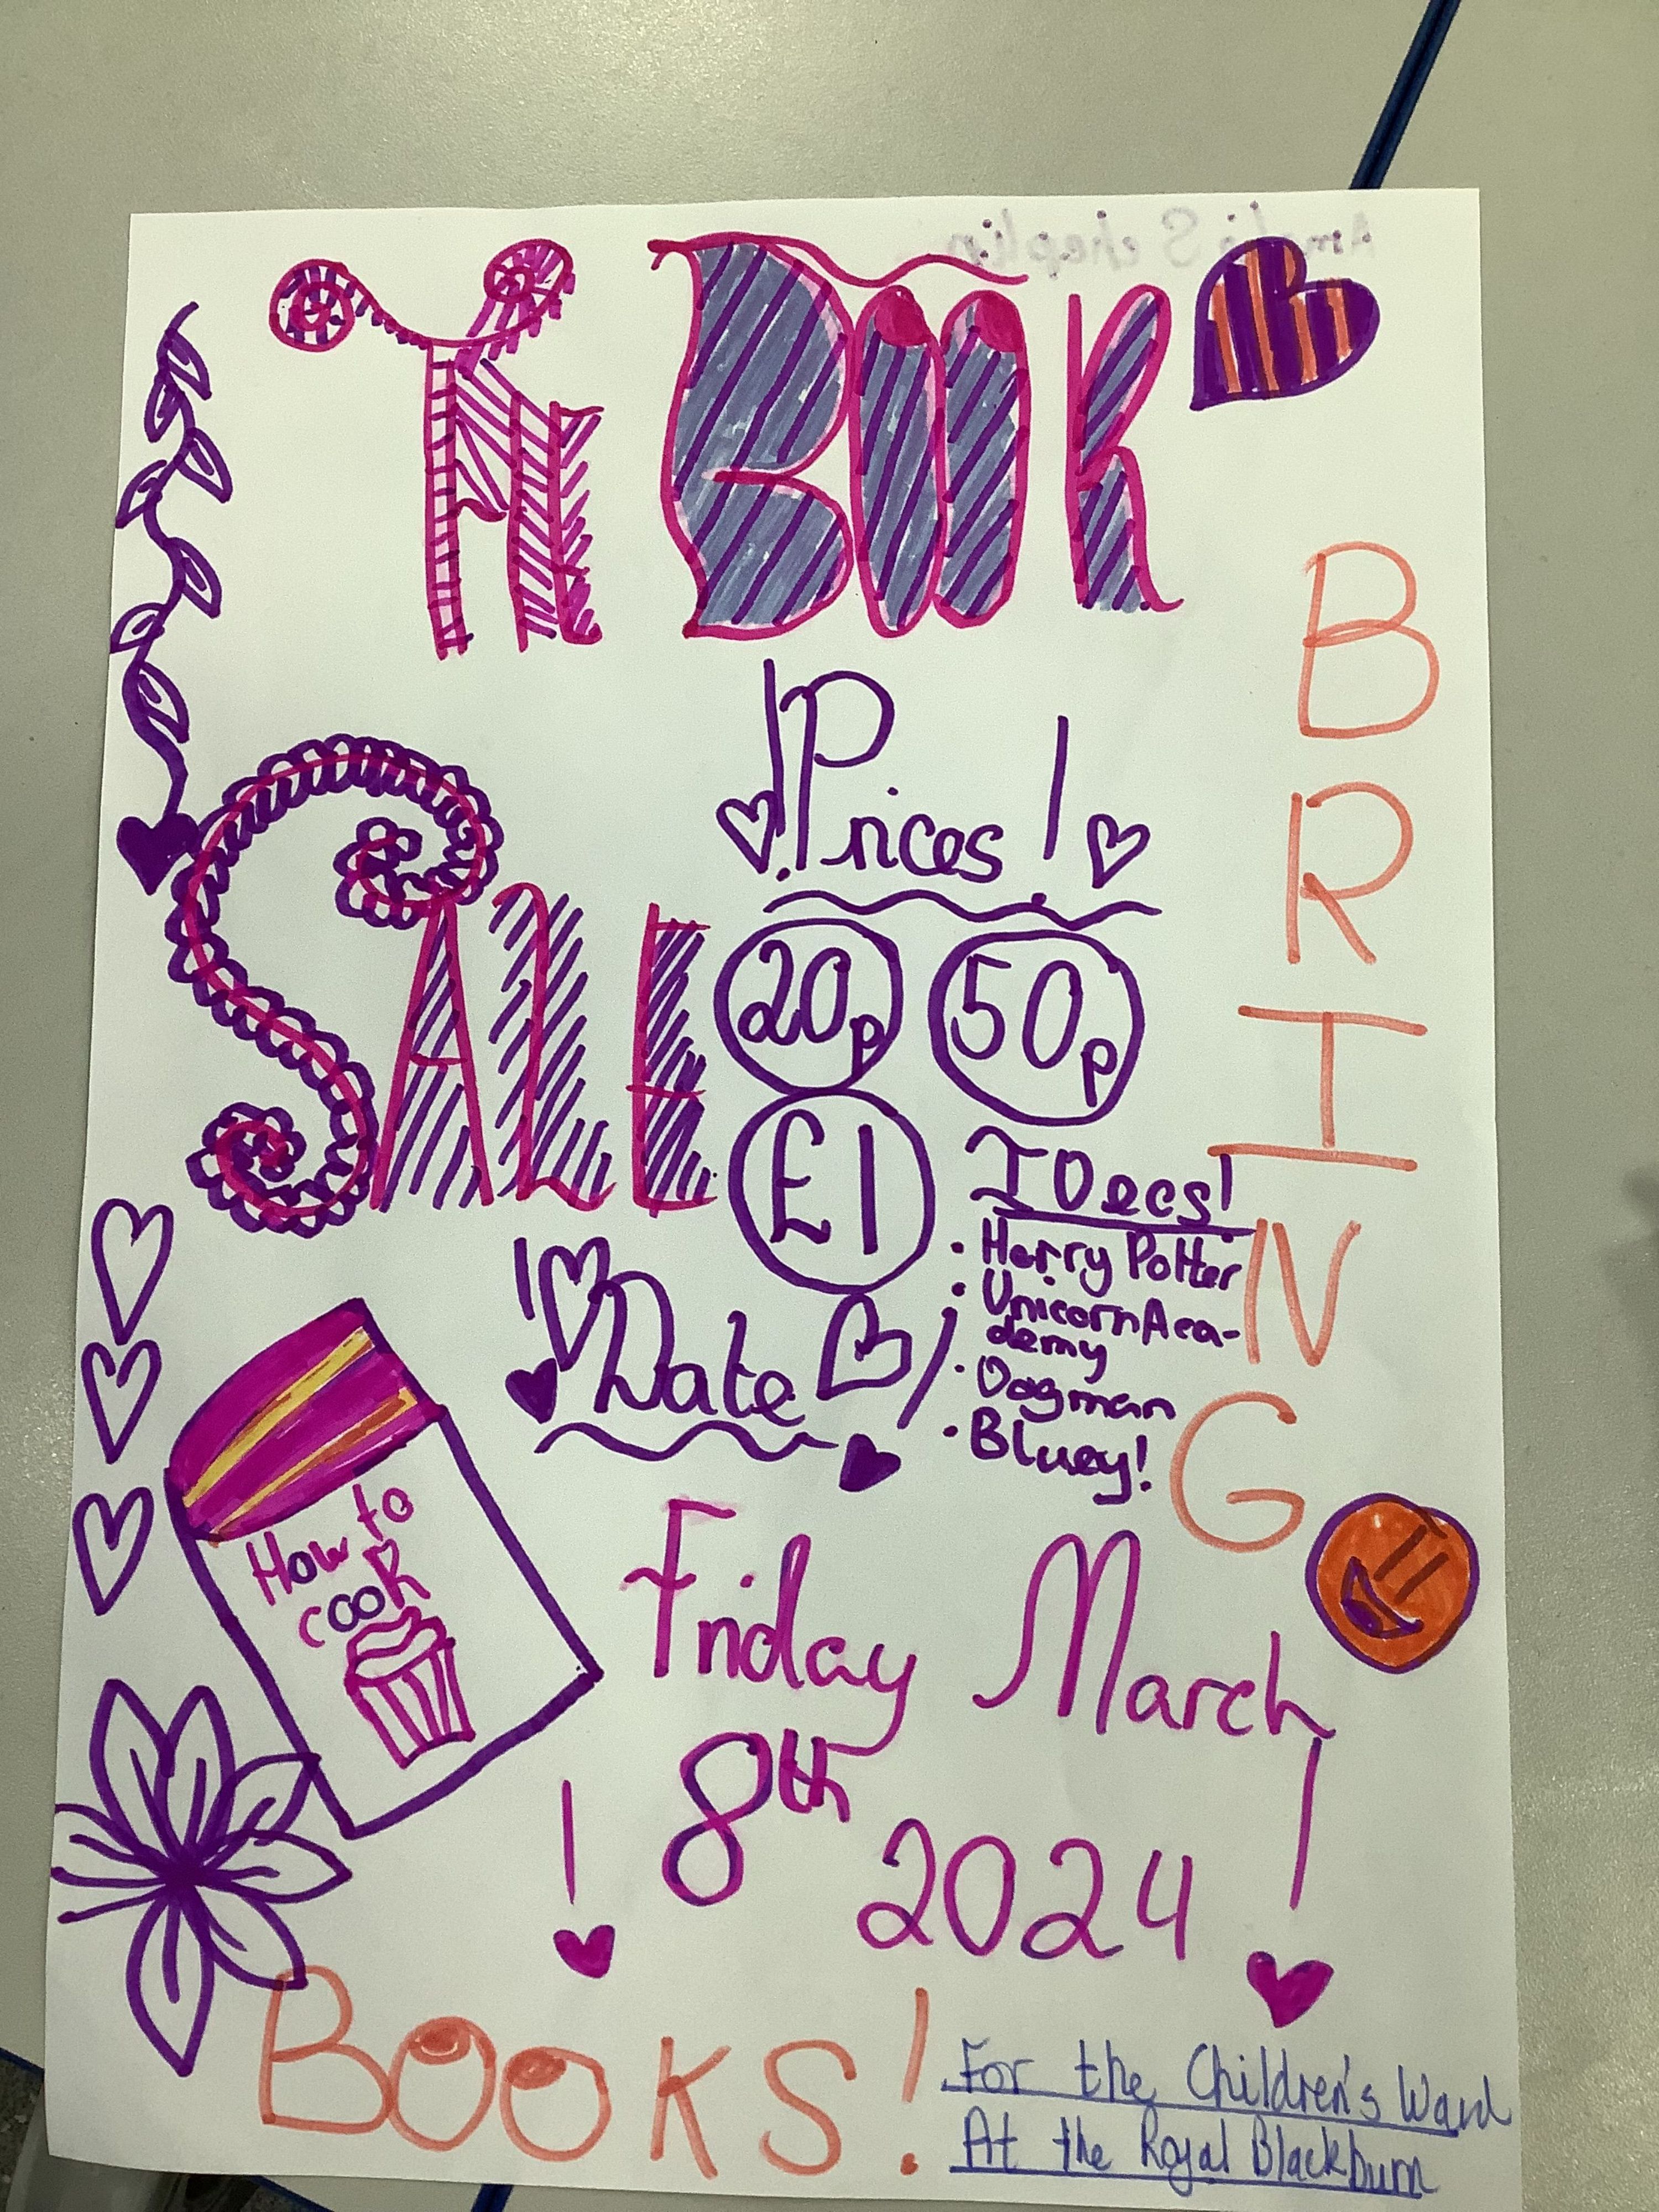 A BOOK
SALE
! Prices !
20p 50p
£1
IDeas!
• Harry Potter
• Unicorn Aca-
demy
• Dogman
• Bluey!
! Date !
How to
cook
Friday March
8th
2024
!
!
BRING
BOOKS!
For the Children's Ward
At the Royal Blackburn